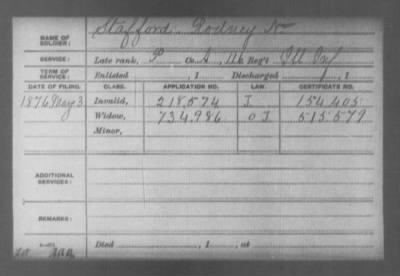 NAME OF SOLDIER: Stafford, Rodney W
SERVICE: Late rank, P Co. A, 116 Reg't Ill Inf
TERM OF SERVICE: Enlisted , 1 Discharged , 1
DATE OF FILING. CLASS. APPLICATION NO. LAW. CERTIFICATE NO.
1876 May 3 Invalid, 218,574 I 154,405
Widow, 734,986 O I 515,579
Minor,
ADDITIONAL SERVICES:
REMARKS:
Died , 1 , at